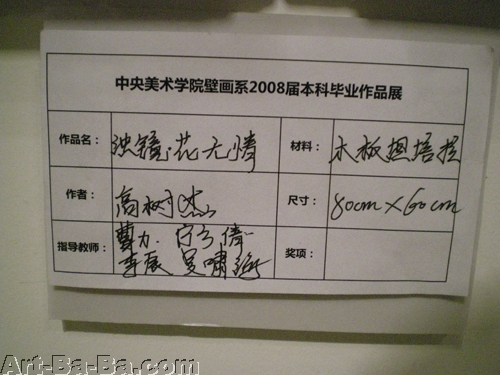 中央美术学院壁画系2008届本科毕业作品展
作品名： 浊镜·花无情 材料： 木板坦培拉
作者： 高树 尺寸： 80cm×60cm
曹力
指导教师： 李辰 啸 奖项：
Art-Ba-Ba.com